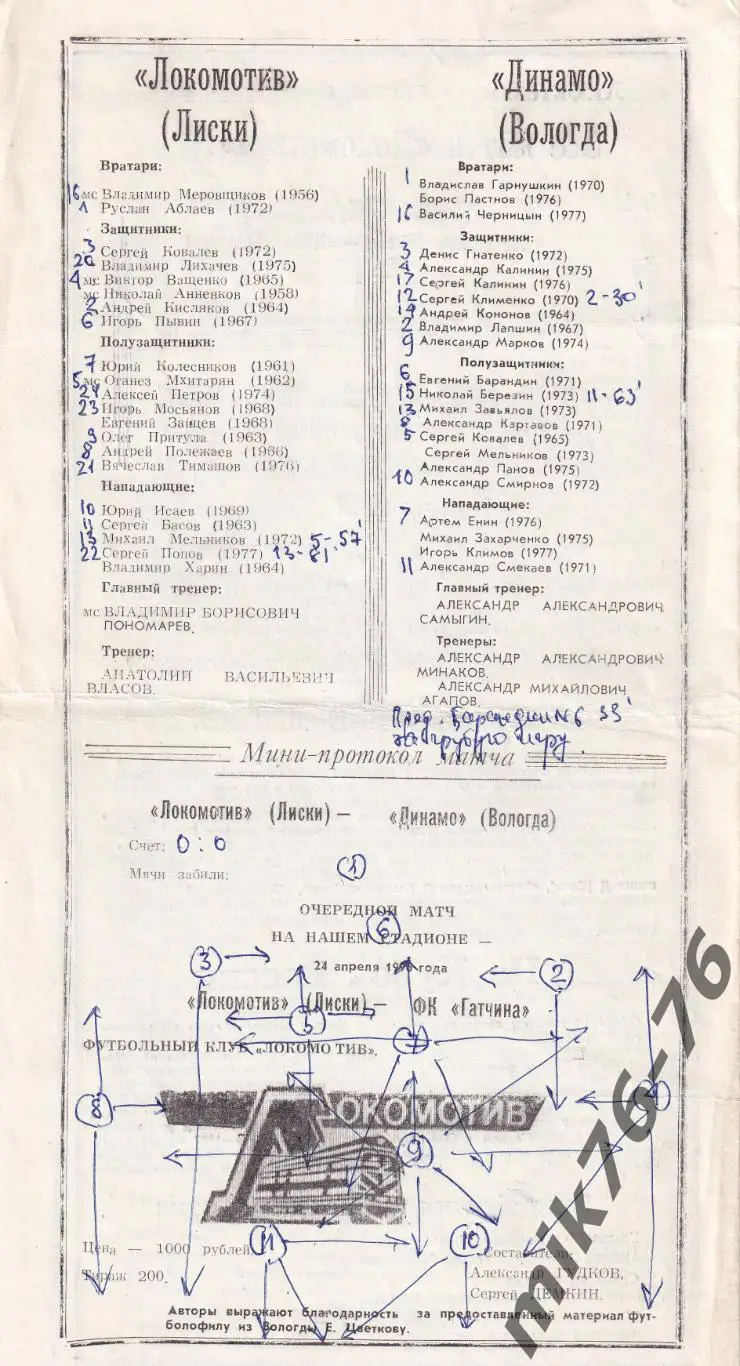 «Локомотив»
(Лиски)
Вратари:
16 мс Владимир Меровщиков (1956)
1 Руслан Аблаев (1972)
Защитники:
3 Сергей Ковалев (1972)
20 Владимир Лихачев (1975)
4 мс Виктор Ващенко (1965)
мс Николай Анненков (1958)
2 Андрей Кисляков (1964)
6 Игорь Пывин (1967)
Полузащитники:
7 Юрий Колесников (1961)
5 мс Оганез Мхитарян (1962)
24 Алексей Петров (1974)
23 Игорь Мосьянов (1968)
Евгений Зайцев (1968)
9 Олег Притула (1963)
8 Андрей Полежаев (1966)
21 Вячеслав Тимашов (1976)
Нападающие:
10 Юрий Исаев (1969)
11 Сергей Басов (1963)
13 Михаил Мельников (1972) 5-57'
22 Сергей Попов (1977) 13-81'
Владимир Харин (1964)
Главный тренер:
мс ВЛАДИМИР БОРИСОВИЧ
ПОНОМАРЕВ.
Тренер:
АНАТОЛИЙ ВАСИЛЬЕВИЧ
ВЛАСОВ.
«Динамо»
(Вологда)
Вратари:
1 Владислав Гарнушкин (1970)
Борис Пастнов (1976)
16 Василий Черницын (1977)
Защитники:
3 Денис Гнатенко (1972)
4 Александр Калинин (1975)
17 Сергей Калинин (1976)
12 Сергей Клименко (1970) 2-30'
14 Андрей Кононов (1964)
2 Владимир Лапшин (1967)
9 Александр Марков (1974)
Полузащитники:
6 Евгений Барандин (1971)
15 Николай Березин (1973) 11-63'
13 Михаил Завьялов (1973)
8 Александр Картавов (1971)
5 Сергей Ковалев (1965)
Сергей Мельников (1973)
Александр Панов (1975)
10 Александр Смирнов (1972)
Нападающие:
7 Артем Енин (1976)
Михаил Захарченко (1975)
Игорь Климов (1977)
11 Александр Смекаев (1971)
Главный тренер:
АЛЕКСАНДР АЛЕКСАНДРОВИЧ
САМЫГИН.
Тренеры:
АЛЕКСАНДР АЛЕКСАНДРОВИЧ
МИНАКОВ.
АЛЕКСАНДР МИХАЙЛОВИЧ
АГАПОВ.
Пред. Барандин N6 33'
за грубую игру.
Мини-протокол матча
«Локомотив» (Лиски) — «Динамо» (Вологда)
Счет: 0:0
Мячи забили:
1
ОЧЕРЕДНОЙ МАТЧ
6
НА НАШЕМ СТАДИОНЕ —
3
2
24 апреля года
«Локомотив» (Лиски) — ФК «Гатчина»
5
7
ФУТБОЛЬНЫЙ КЛУБ «ЛОКОМОТИВ».
8
4
ЛОКОМОТИВ
9
11
10
Цена — 1000 рублей
Тираж 200.
Составители:
Александр ГУДКОВ,
Сергей ДЕМКИН.
Авторы выражают благодарность за предоставленный материал фут-
болофилу из Вологды Е. Цветкову.
mik76-76